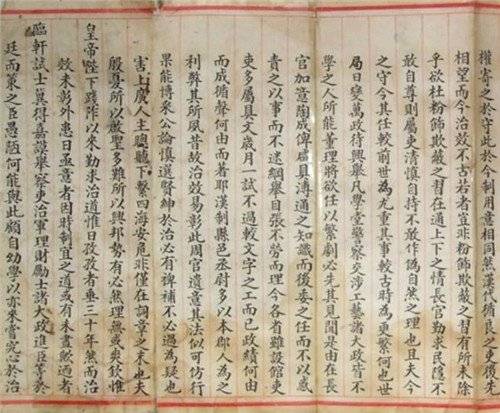 權寄之於守此於今制用意相同然漢代循良之吏後先
相望而今治效不古若者豈非粉飾欺蔽之習有所未除
乎欲杜粉飾欺蔽之習在通上下之情長官勤求民隱不
敢自尊則屬吏清慎自持不敢作偽自然之理也且夫今
之守令其任較前世為尤重其事較古時為更繁何也世
局日變萬政待興舉凡學堂警察交涉工藝諸大政皆不
學之人所能董理將欲任以繁劇必先其見聞是由在長
官加意陶成俾虛具溥通之知識而後委之任而不以惑
責之以事而不迷綱舉目張不勞而理今各省雖設館課
吏多屬具文歲月一試不過較文字之工而已政績何由
而成循聲何由而著耶漢制縣邑丞尉多以本郡人為之
利弊其所夙昔故治效易彰此周官遺意其法似可仿行
果能博采公論慎選賢紳於治必有裨補不必過為疑也
害上廣人主聰聽下繫四海安危非僅在詞章之末也夫
殷憂所以啟聖多難所以興邦勢有必然理無或爽欽惟
皇帝陛下踐阼以來勤求治道惟日孜孜者垂三十年然而治
效未彰外患日亟意者因時制宜之道或有未盡歟過者
臨軒試士冀得嘉謨舉察吏治軍理財勵士諸大政進臣等於
廷而策之臣愚陋何能與此顧自幼學以亦來嘗究心於治